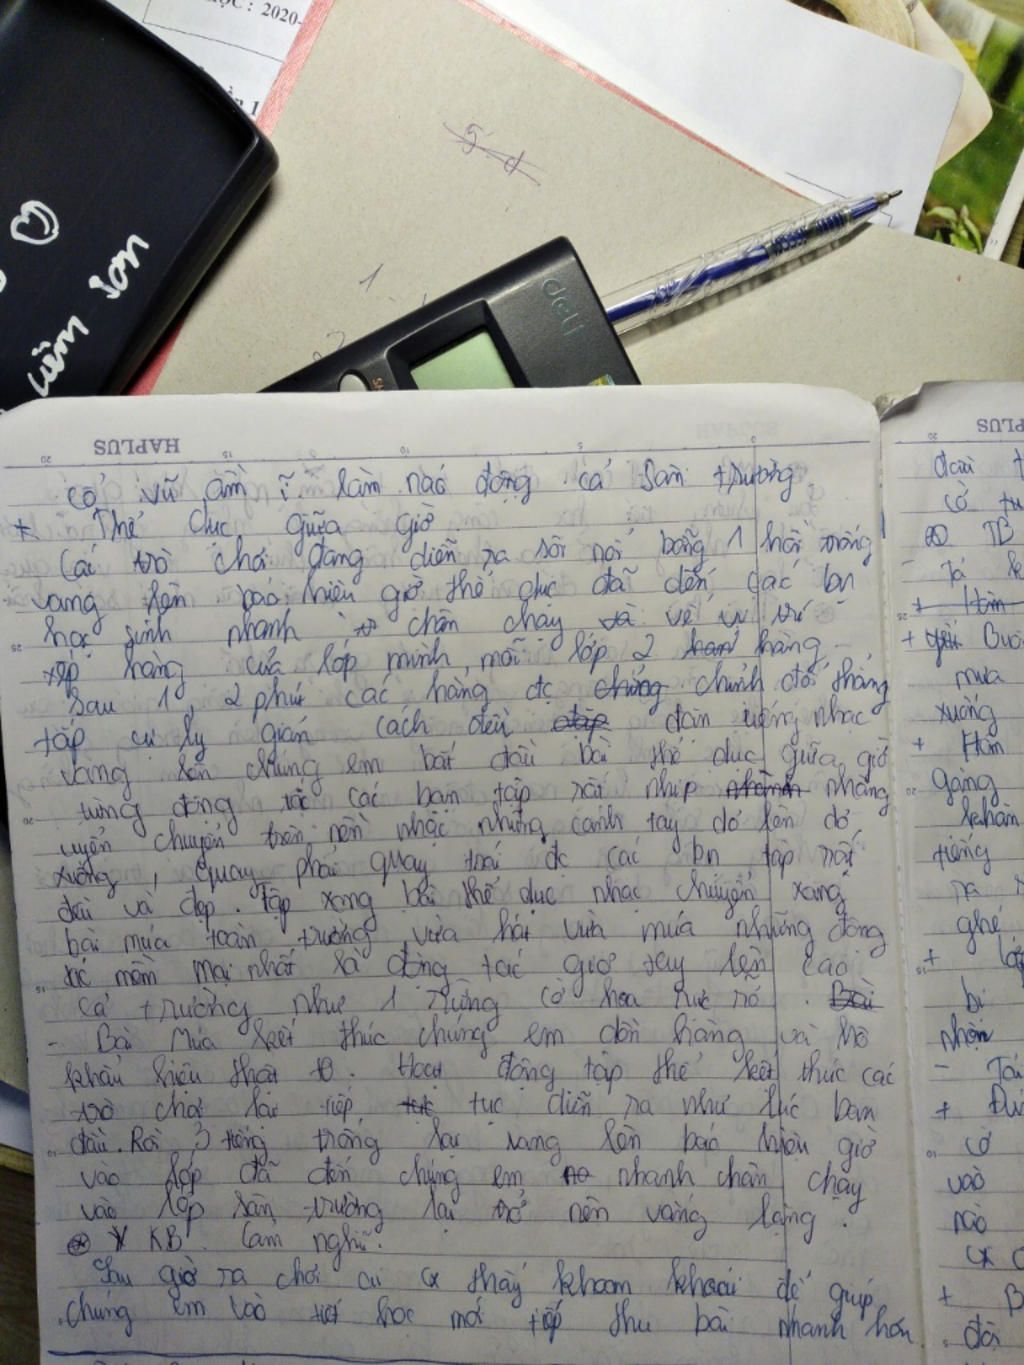 ỌC : 2020-
5 d
1
deli
niềm son
HAPLUS
cổ vũ ầm ĩ làm náo động cả sân trường.
* Thể dục giữa giờ
Các trò chơi đang diễn ra sôi nổi bỗng 1 hồi trống
vang lên báo hiệu giờ thể dục đã đến, các bn
học sinh nhanh chân chạy và về vị trí
xếp hàng của lớp mình, mỗi lớp 2 han hàng.
Sau 1, 2 phút các hàng đc chúng chỉnh đốn thẳng
tắp cự ly giãn cách đều đặn tiếng nhạc
vang lên chúng em bắt đầu bài thể dục giữa giờ
từng động tác các bạn tập rất nhịp nhành nhàng
uyển chuyển trên nền nhạc những cánh tay đó lên đó
xuống, quay phải quay trái đc các bn tập rất
đều và đẹp. Tập xong bài thể dục nhạc chuyển xang
bài múa toàn trường vừa hát vừa múa những động
tác mềm mại nhất là động tác giơ tay lên cao
cả trường như 1 rừng cờ hoa rực rỡ. Bài
- Bài múa kết thúc chúng em dồn hàng và hô
khẩu hiệu thật to. Hoạt động tập thể kết thúc các
trò chơi lại tiếp tục diễn ra như lúc ban
đầu. Rồi 3 tiếng trống lại vang lên báo hiệu giờ
vào lớp đã đến chúng em nhanh chân chạy
vào lớp sân trường lại trở nên vắng lặng.
* KB. Cảm nghĩ.
Sau giờ ra chơi thấy khoan khoái để giúp
chúng em vào tiết học mới tiếp thu bài nhanh hơn
HAPLUS
cờ
TB
Tả
+ Hôm
+ Buổi
mưa
xuống
+ Hôm
gàng
khăn
tiếng
ra
ghé
+ lớp
bị
nhộn
+
cờ
vào
nào
+ B
đôi